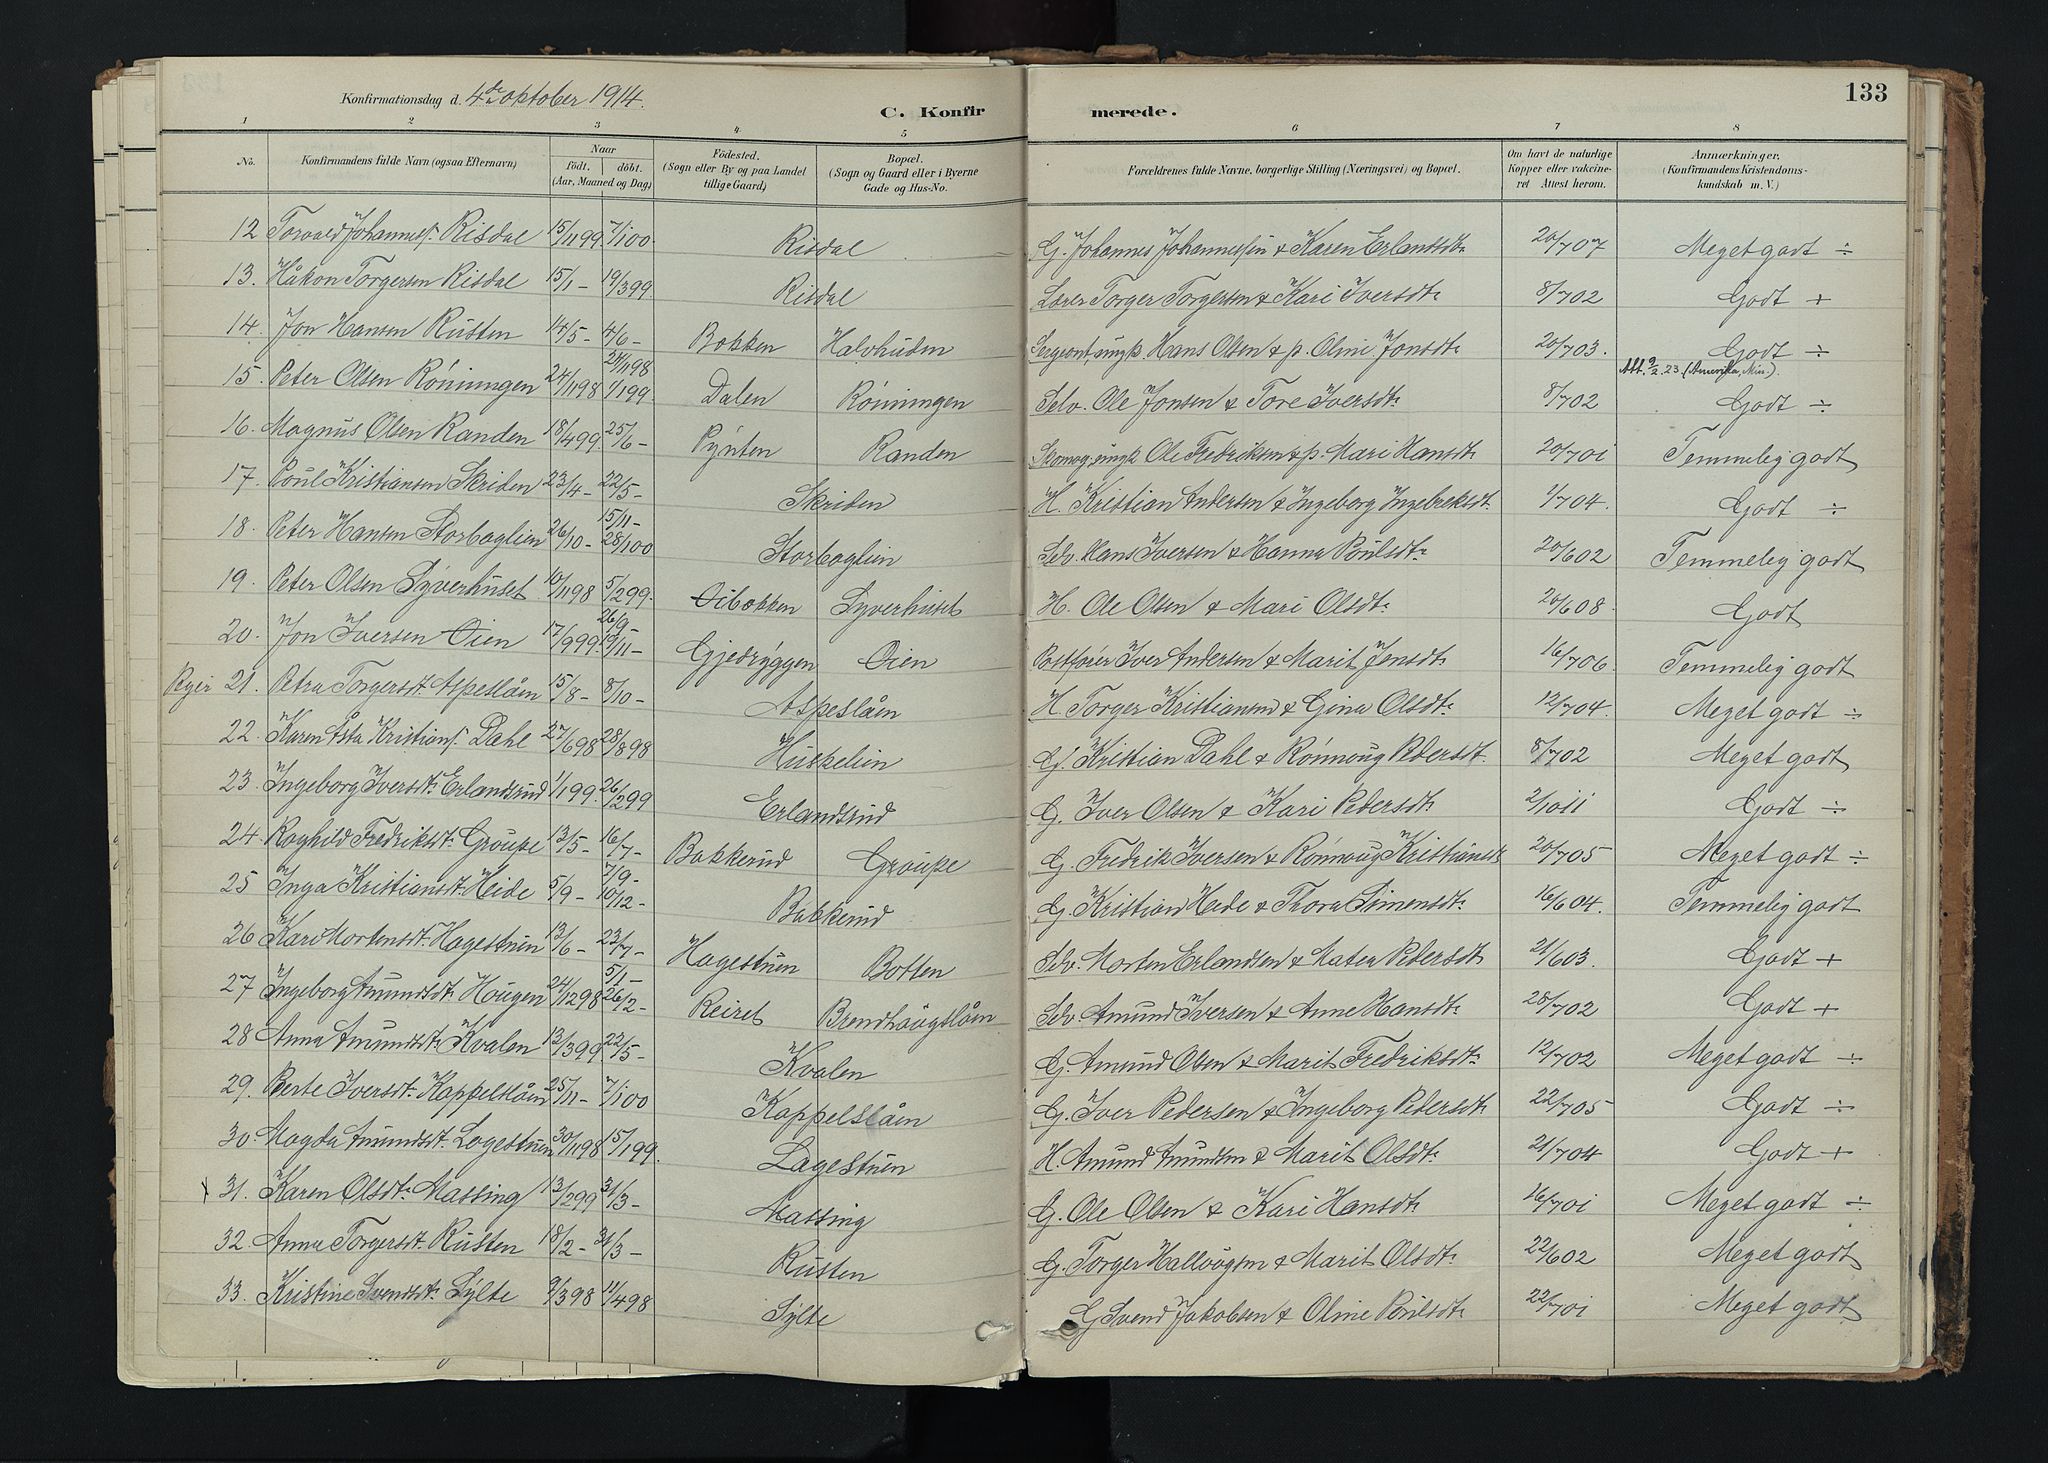 133
Konfirmationsdag d. 4de oktober 1914.
C. Konfirmerede.
1 2 3 4 5 6 7 8
No. Konfirmandens fulde Navn (ogsaa Efternavn) Naar födt. döbt. (Aar, Maaned og Dag) Födested. (Sogn eller By og paa Landet tillige Gaard) Bopæl. (Sogn og Gaard eller i Byerne Gade og Hus-No. Forældrenes fulde Navne, borgerlige Stilling (Næringsvei) og Bopæl. Om havt de naturlige Kopper eller vakcineret Attest herom. Anmærkninger. (Konfirmandens Kristendomskundskab m. V.)
12 Torvald Johanness. Risdal 15/1199 7/100 Risdal G. Johannes Johannessen & Karen Erlandsdt. 20/707 Meget godt ÷
13. Håkon Torgersen Risdal 15/1 - 19/399 Risdal Lærer Torger Torgersen & Kari Iversdt. 8/702 Godt +
14. Jon Hansen Rusten 14/5 - 4/6 - Bakken Halvhuden Sergeant, ungk. Hans Olsen & p. Oline Jonsdt. 20/703. Godt ÷
Att. 9/2.23 (Amerika, Min.).
15. Peter Olsen Röningen 24/1198 24/1198 1/199 Dalen Röningen Selv. Ole Jonsen & Tore Iversdt. 8/702 Godt ÷
16. Magnus Olsen Randen 18/499. 25/6 - Pynten Randen Skomag, ungk Ole Fredriksen & p. Mari Hansdt 20/701 Temmelig godt
17. Poul Kristiansen Skriden 23/4 - 22/5 - Skriden H. Kristian Andersen & Ingeborg Ingebrektsdt. 1/704. Godt ÷
18. Peter Hansen Storbaglien 26/10 - 15/11 - 28/100 Storbaglien Selv. Hans Iversen & Hanna Poulsdt. 20/602 Temmelig godt
19. Peter Olsen Syverhuset 10/1198 5/299. 
Öibakken Syverhuset H. Ole Olsen & Mari Olsdt. 20/608. Godt
20. Jon Iversen Öien 17/999. 26/9 - 19/11 - Gjedryggen Öien Postfører Iver Andersen & Marit Jonsdt. 16/706. Temmelig godt
21. Petra Torgersdt. Aspeslåen 15/8 - 8/10 - Aspeslåen H. Torger Kristiansen & Gina Olsdt. 12/704. Meget godt ÷
22. Karen Åsta Kristians. Dahl 27/698 28/898 Huskelien G. Kristian Dahl & Rønnoug Pedersdt. 8/702 Meget godt
23. Ingeborg Iversdt. Erlandsrud 1/199. 26/299 Erlandsrud G. Iver Olsen & Kari Pedersdt. 2/1011 Godt ÷
24. Raghild Fredriksdt. Groupe 13/5 - 16/7 - Bakkerud Groupe G. Fredrik Iversen & Rønnoug Kristiansdt 20/705 Meget godt ÷
25 Inga Kristiansdt. Heide 5/9 - 7/9 - 10/12 - Bakkerud G. Kristian Heide & Thora Simensdt. 16/604. Temmelig godt
26 Kari Mortensdt. Hagestuen 13/6 - 23/7 - Hagestuen Botten Selv. Morten Erlandsen & Mater Pedersdt 21/603. Godt +
27 Ingeborg Amundsdt. Hougen 24/1298 5/1 - 26/2 - Reiret Brendhaugslåen Selv. Amund Iversen & Anne Hansdt. 28/702 Godt +
28 Anna Amundsdt. Kvalen 12/399 22/5 - Kvalen G. Amund Olsen & Marit Fredriksdt. 12/702 Meget godt ÷
29. Berte Iversdt. Kappelslåen 25/11 - 7/100 Kappelslåen G. Iver Pedersen & Ingeborg Pedersdt. 22/705 Godt ÷
30. Magda Amundsdt. Lagestuen 30/1198 15/199. Lagestuen H. Amund Amundsen & Marit Olsdt. 21/704 Godt +
31. Karen Olsdt. Massing 13/299 31/3 - Massing G. Ole Olsen & Kari Hansdt. 16/701 Meget godt ÷
32. Anna Torgersdt. Rusten 18/2 - 31/3 - Rusten G. Torger Hallvogsen & Marit Olsdt. 22/602 Meget godt
33. Kristine Svendsdt. Sylte 9/398 11/498 Sylte G Svend Jakobsen & Oline Poulsdt. 22/701 Meget godt